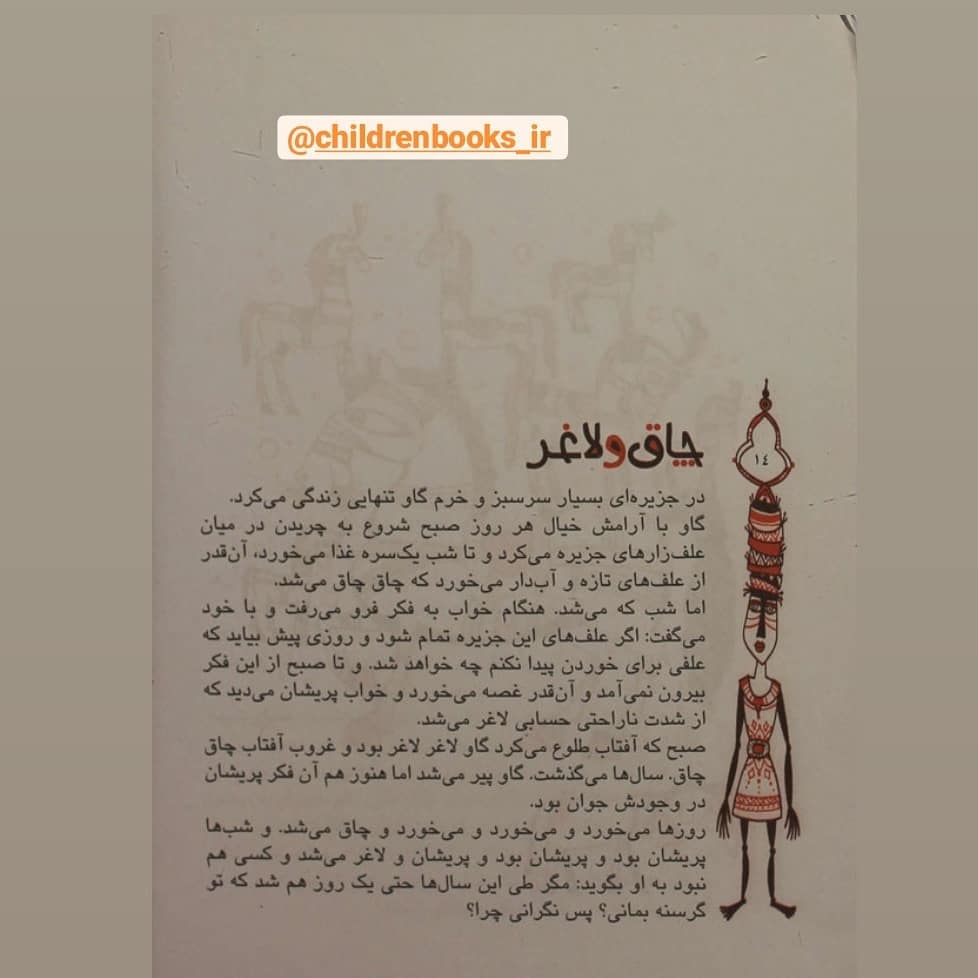 @childrenbooks_ir
چاق و لاغر
۱٤
در جزیره‌ای بسیار سرسبز و خرم گاو تنهایی زندگی می‌کرد.
گاو با آرامش خیال هر روز صبح شروع به چریدن در میان
علف‌زارهای جزیره می‌کرد و تا شب یک‌سره غذا می‌خورد، آن‌قدر
از علف‌های تازه و آب‌دار می‌خورد که چاق چاق می‌شد.
اما شب که می‌شد. هنگام خواب به فکر فرو می‌رفت و با خود
می‌گفت: اگر علف‌های این جزیره تمام شود و روزی پیش بیاید که
علفی برای خوردن پیدا نکنم چه خواهد شد. و تا صبح از این فکر
بیرون نمی‌آمد و آن‌قدر غصه می‌خورد و خواب پریشان می‌دید که
از شدت ناراحتی حسابی لاغر می‌شد.
صبح که آفتاب طلوع می‌کرد گاو لاغر لاغر بود و غروب آفتاب چاق
چاق. سال‌ها می‌گذشت. گاو پیر می‌شد اما هنوز هم آن فکر پریشان
در وجودش جوان بود.
روزها می‌خورد و می‌خورد و می‌خورد و چاق می‌شد. و شب‌ها
پریشان بود و پریشان بود و پریشان و لاغر می‌شد و کسی هم
نبود به او بگوید: مگر طی این سال‌ها حتی یک روز هم شد که تو
گرسنه بمانی؟ پس نگرانی چرا؟